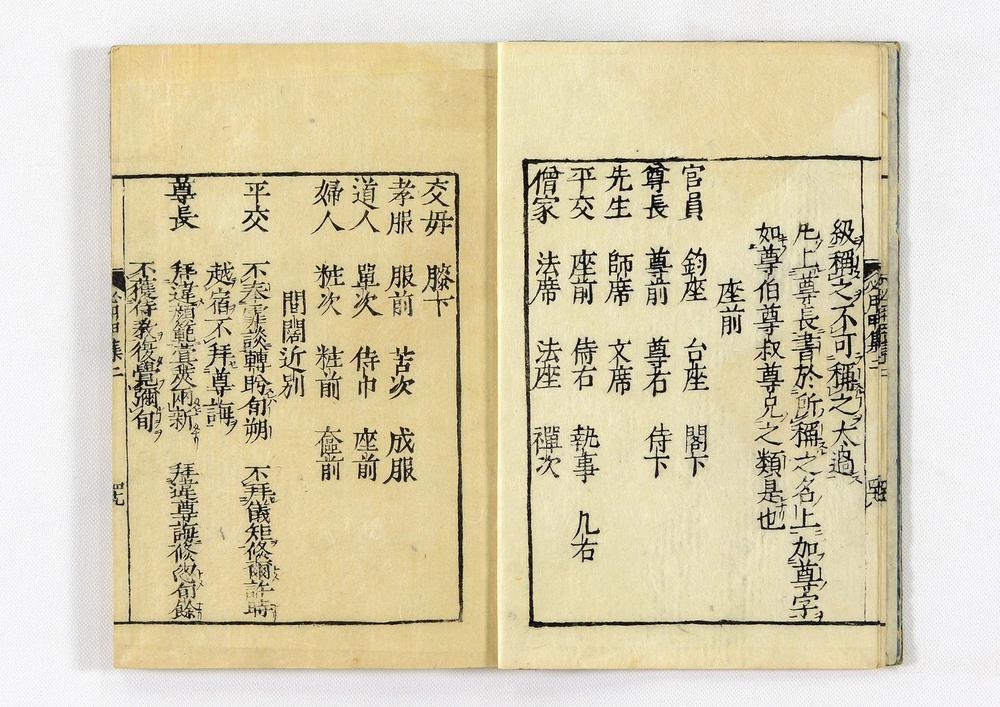 級稱之不可稱之太過
凡上尊長書於所稱之名上加尊字
如尊伯尊叔尊兄之類是也
座前
官員 鈞座 台座 閣下
尊長 尊前 尊右 侍下
先生 師席 文席
平交 座前 侍右 執事 几右
僧家 法席 法座 禪次
父母 膝下
孝服 服前 苫次 成服
道人 單次 侍巾 座前
婦人 粧次 粧前 奩前
間闊近別
平交 不奉霏談轉盼旬朔 不拜儀矩倏爾許時
越宿不拜尊誨
尊長 拜違顔範蓂莢兩新 拜違尊誨倏忽旬餘
不獲侍教復覺彌旬